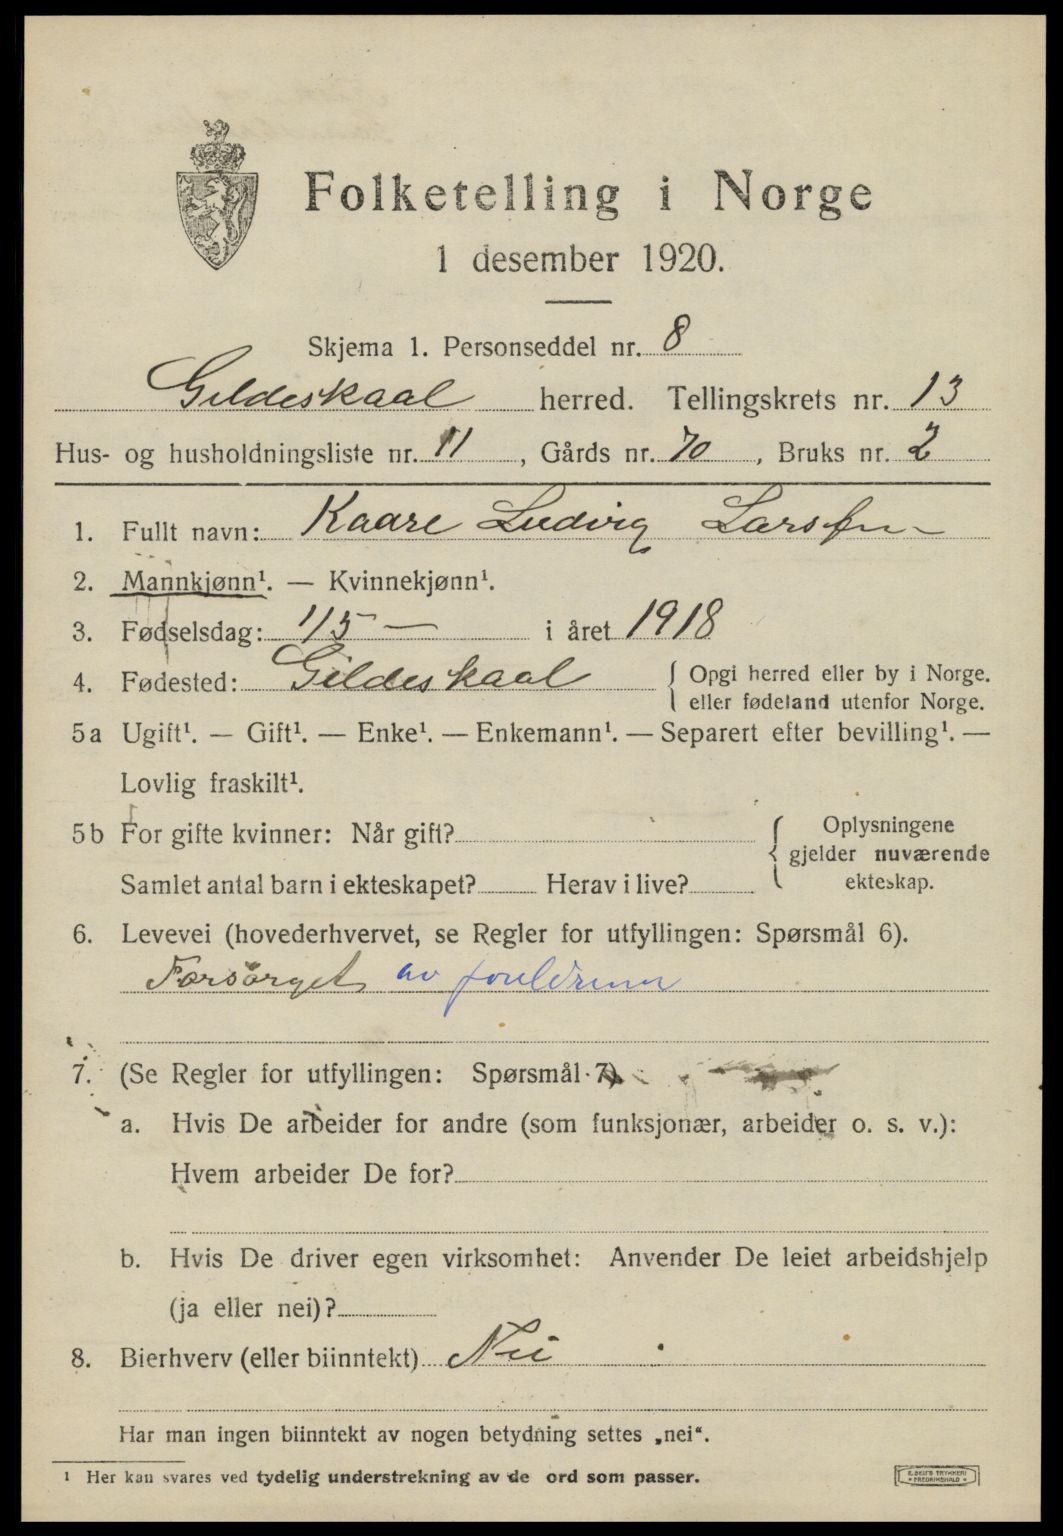 Folketelling i Norge
1 desember 1920.
Skjema 1. Personseddel nr. 8
Gildeskaal herred. Tellingskrets nr. 13
Hus- og husholdningsliste nr. 11, Gårds nr. 70, Bruks nr. 2
1. Fullt navn: Kaare Ludvig Larsen
2. Mannkjønn¹. — Kvinnekjønn¹.
3. Fødselsdag: 1/5 — i året 1918
4. Fødested: Gildeskaal { Opgi herred eller by i Norge.
eller fødeland utenfor Norge.
5a Ugift¹. — Gift¹. — Enke¹. — Enkemann¹. — Separert efter bevilling¹. —
Lovlig fraskilt¹.
5b For gifte kvinner: Når gift? { Oplysningene
gjelder nuværende
Samlet antal barn i ekteskapet? Herav i live? ekteskap.
6. Levevei (hovederhvervet, se Regler for utfyllingen: Spørsmål 6).
Forsörget av foreldrene
7. (Se Regler for utfyllingen: Spørsmål 7)
a. Hvis De arbeider for andre (som funksjonær, arbeider o. s. v.):
Hvem arbeider De for?
b. Hvis De driver egen virksomhet: Anvender De leiet arbeidshjelp
(ja eller nei)?
8. Bierhverv (eller biinntekt) Nei
Har man ingen biinntekt av nogen betydning settes „nei“.
¹ Her kan svares ved tydelig understrekning av de ord som passer.
E. SEM'S TRYKKERI
• FREDRIKSHALD •